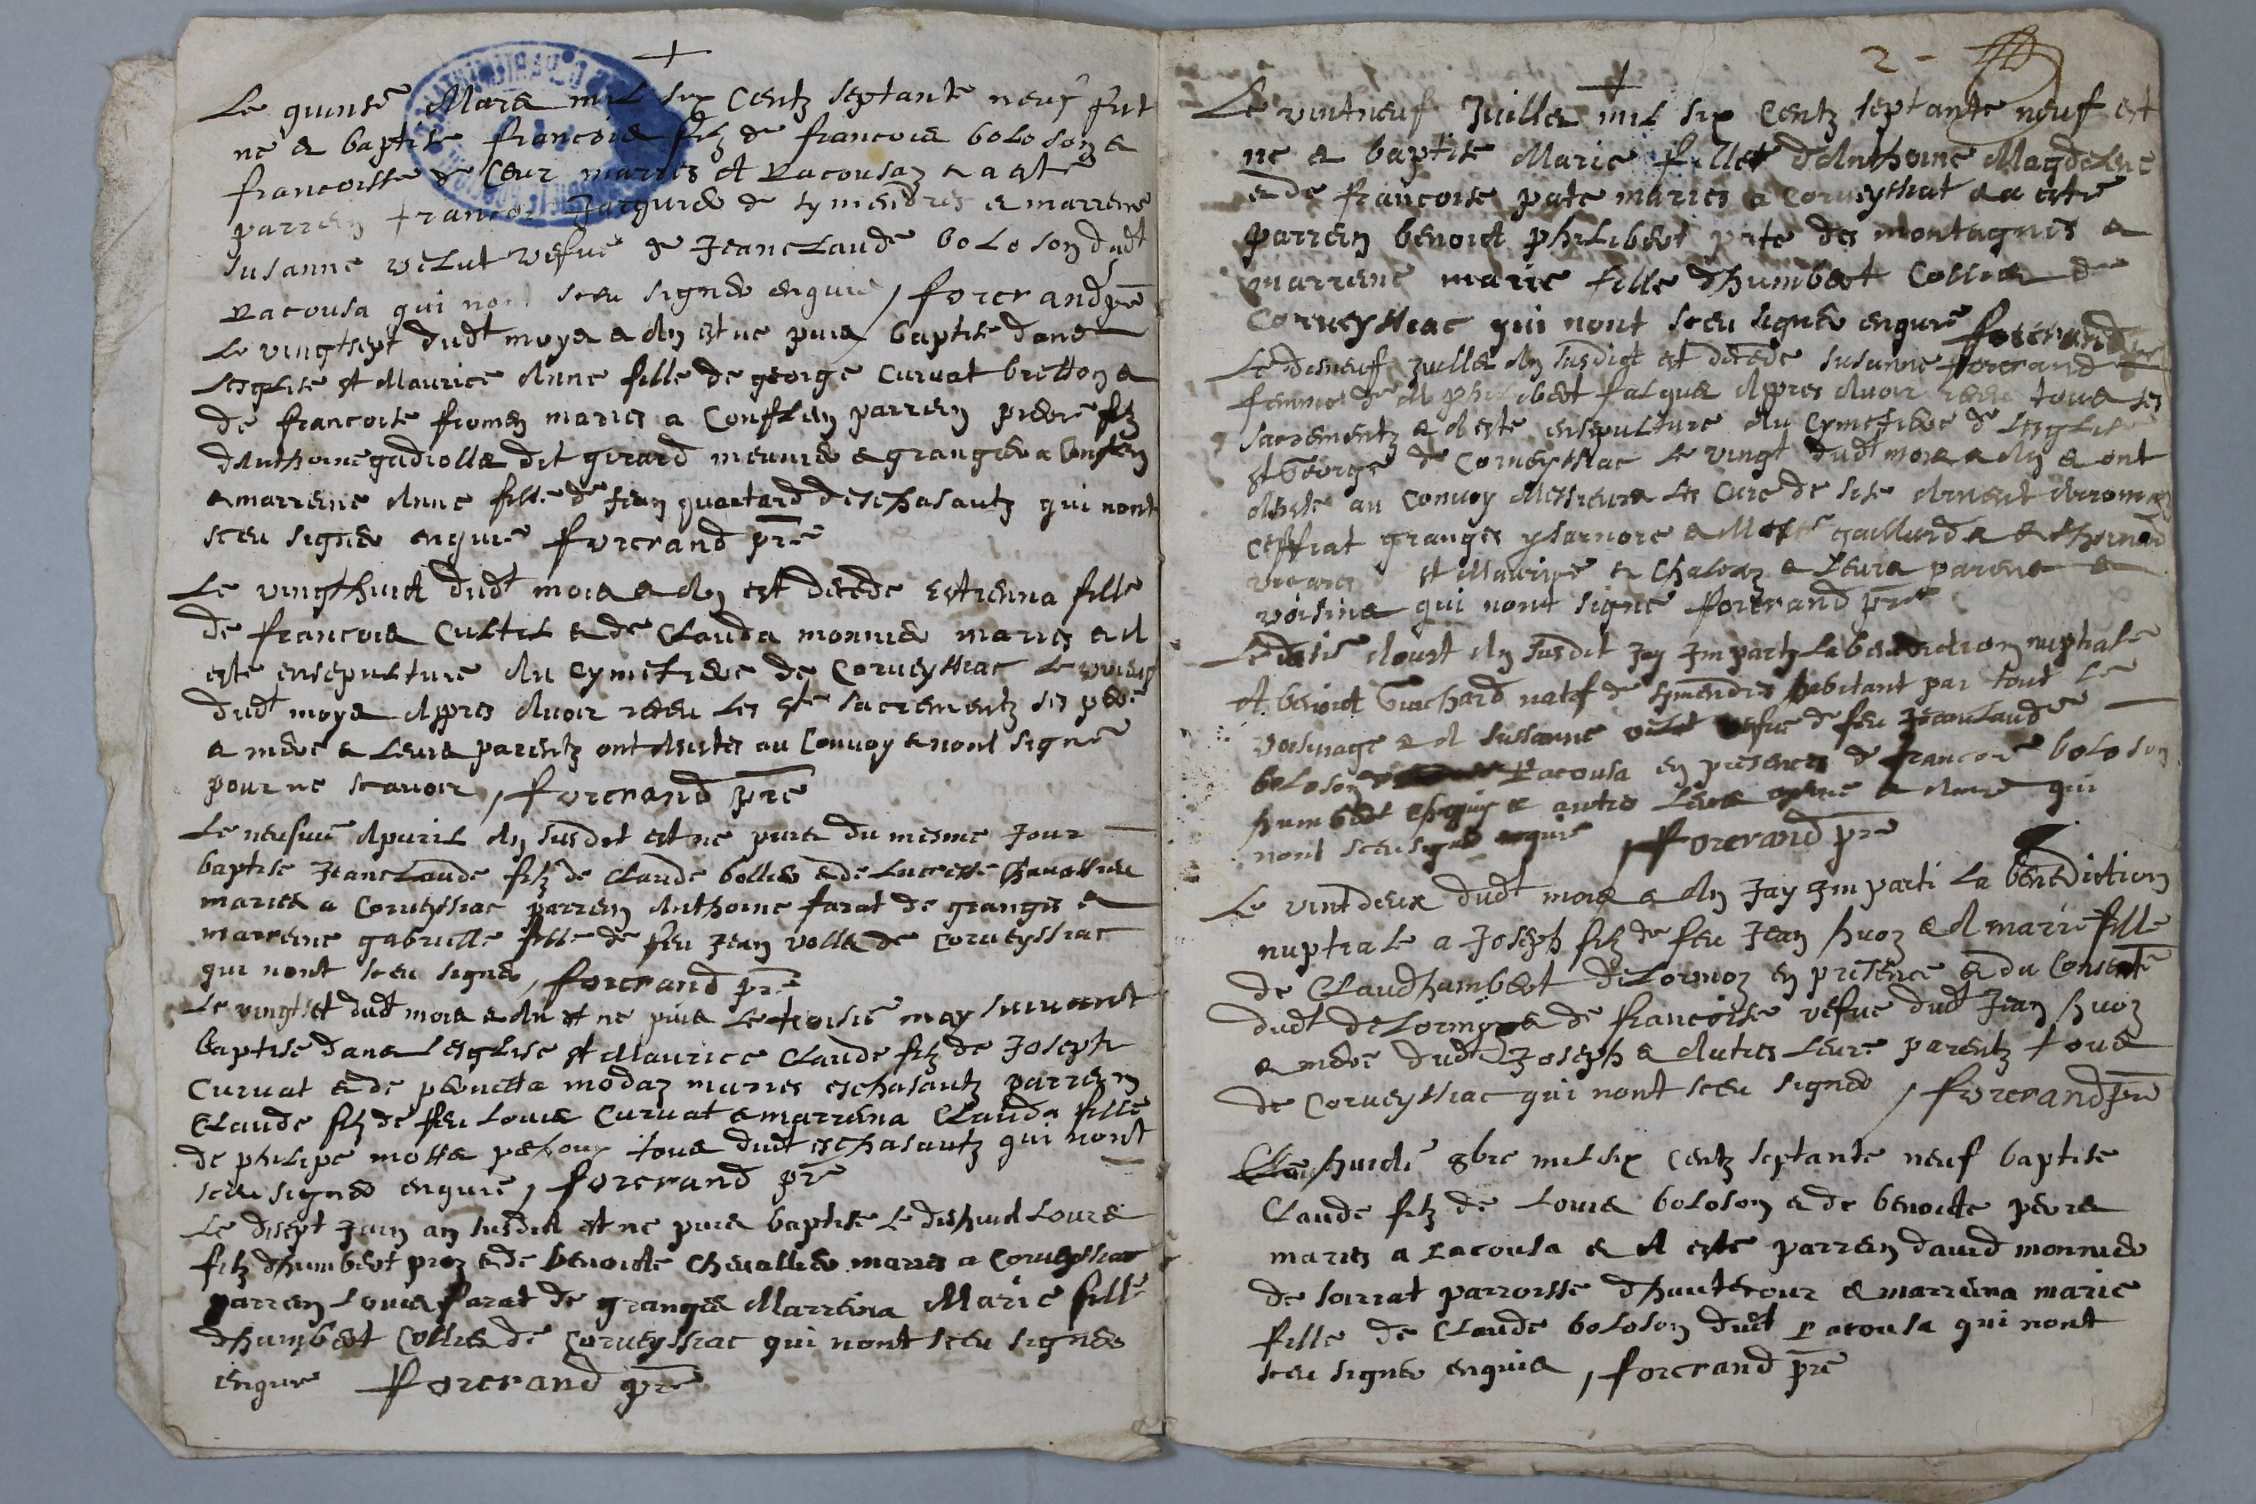 +
Le quinsē Mars mil six Centz septante neuf fut
ne & baptise francois filz de francois boloson &
francoisse de Cour maries A Racousaz & a este
parrein francois Jacquier de symendres & marrene
susanne velut vefue de Jeanclaude boloson dudt
Racousa qui nont sceu signer enquis / forcrand pre
Le vingtsept dudt moys & An est ne puis baptise dans
Lesglise st Maurice Anne fille de george Curuat bretton &
de francoise fromen maries a Conflen parrein pierre filz
dAnthoine gadiolla dit girard meunier & granger a Conflen
& marreine Anne fille de Jean quartard deschasautz qui nont
sceu signer enquis forcrand pre
Le vingthuict dudt mois & An est decede Estienna fille
de francois Cultil & de Clauda monnier maries & A
este ensepulture Au Cymetiere de Corveyssiac Le
dudt moys Appres Auoir receu Les sts sacrementz ses pere
& mere & Leurs parentz ont Assistes au Convoy & nont signe
pour ne scauoir / forcrand pre
Le neufuie Apuril An susdit est ne puis du mesme Jour
baptise Jeanclaude filz de Claude bollier & de Lucresse Chavallier
maries a Corveyssiac parrein Anthoine farat de granges &
marreine gabrielle fille de feu Jean volla de Corveyssiac
qui nont sceu signer / forcrand pre
Le vingtset dudt mois & An est ne puis Le troisie may suivant
baptise dans Lesglise st Maurice Claude filz de Joseph
Curuat & de pernetta modaz maries eschasautz parrein
Claude filz de feu Louis Curuat & marreina Clauda fille
de philipe motta tous dudt eschasautz qui nont
sceu signer enquis / forcrand pre
Le disept Juin an susdit est ne puis baptise Le dishuict Louis
filz dhumbert proz & de benoicte Chevallier maries a Corveyssiac
parrein Louis farat de granges Marreina Marie fille
dhumbert Collier de Corveyssiac qui nont sceu signer
enquis forcrand pre
2 -
+
Le vintneuf Juillet mil six Centz septante neuf est
ne & baptise Marie fille dAnthoine Magdelene
& de francoise pate maries a Corveyssiat & a este
parrein benoict philibert pate des montagnes &
marrene marie fille dhumbert Collier de
Corveyssiac qui nont sceu signer enquis forcrand
Le disneuf Juillet An susdict est decede susanne forcrand
femme de M philibert falque Appres Avoir receu tous ses
sacrementz & A este ensepulture Au Cymetiere de Lesglise
st George de Corveyssiac Le vingt dudt mois & An & ont
Assiste au Convoy Messieurs Les Cure de
Ceffiat granges ysarnore & gaillard &
vicaires st Maurice & Chaleaz & Leurs parens &
voisins qui nont signe forcrand pre
Le Aoust An susdit Jay Imparty La benediction nuptiale
A benoict Guichard natif de symendres habitant par tout Le
voisinage & A sussanne velut vefue de feu Jeanclaude
boloson Racousa en presence de francois boloson
humbert & autres Leurs qui
nont sceu signer enquis / forcrand pre
Le vintdeux dudt mois & An Jay Imparti La benediction
nuptiale a Joseph filz de feu Jean huoz & A marie fille
de Claudhumbert delormoz en presence & du Consente
dudt delormoz & de francoise vefue dudt Jean huoz
& mere dudt Joseph & Autres Leurs parentz tous
de Corveyssiac qui nont sceu signer / forcrand pre
Le huictie 8bre mil six Centz septante neuf baptise
Claude filz de Louis boloson & de benoicte
maries a Racousa & A este parrein david monnier
de sarrat parroisse dhautecour & marreina marie
fille de Claude boloson dudt Racousa qui nont
sceu signer enquis / forcrand pre